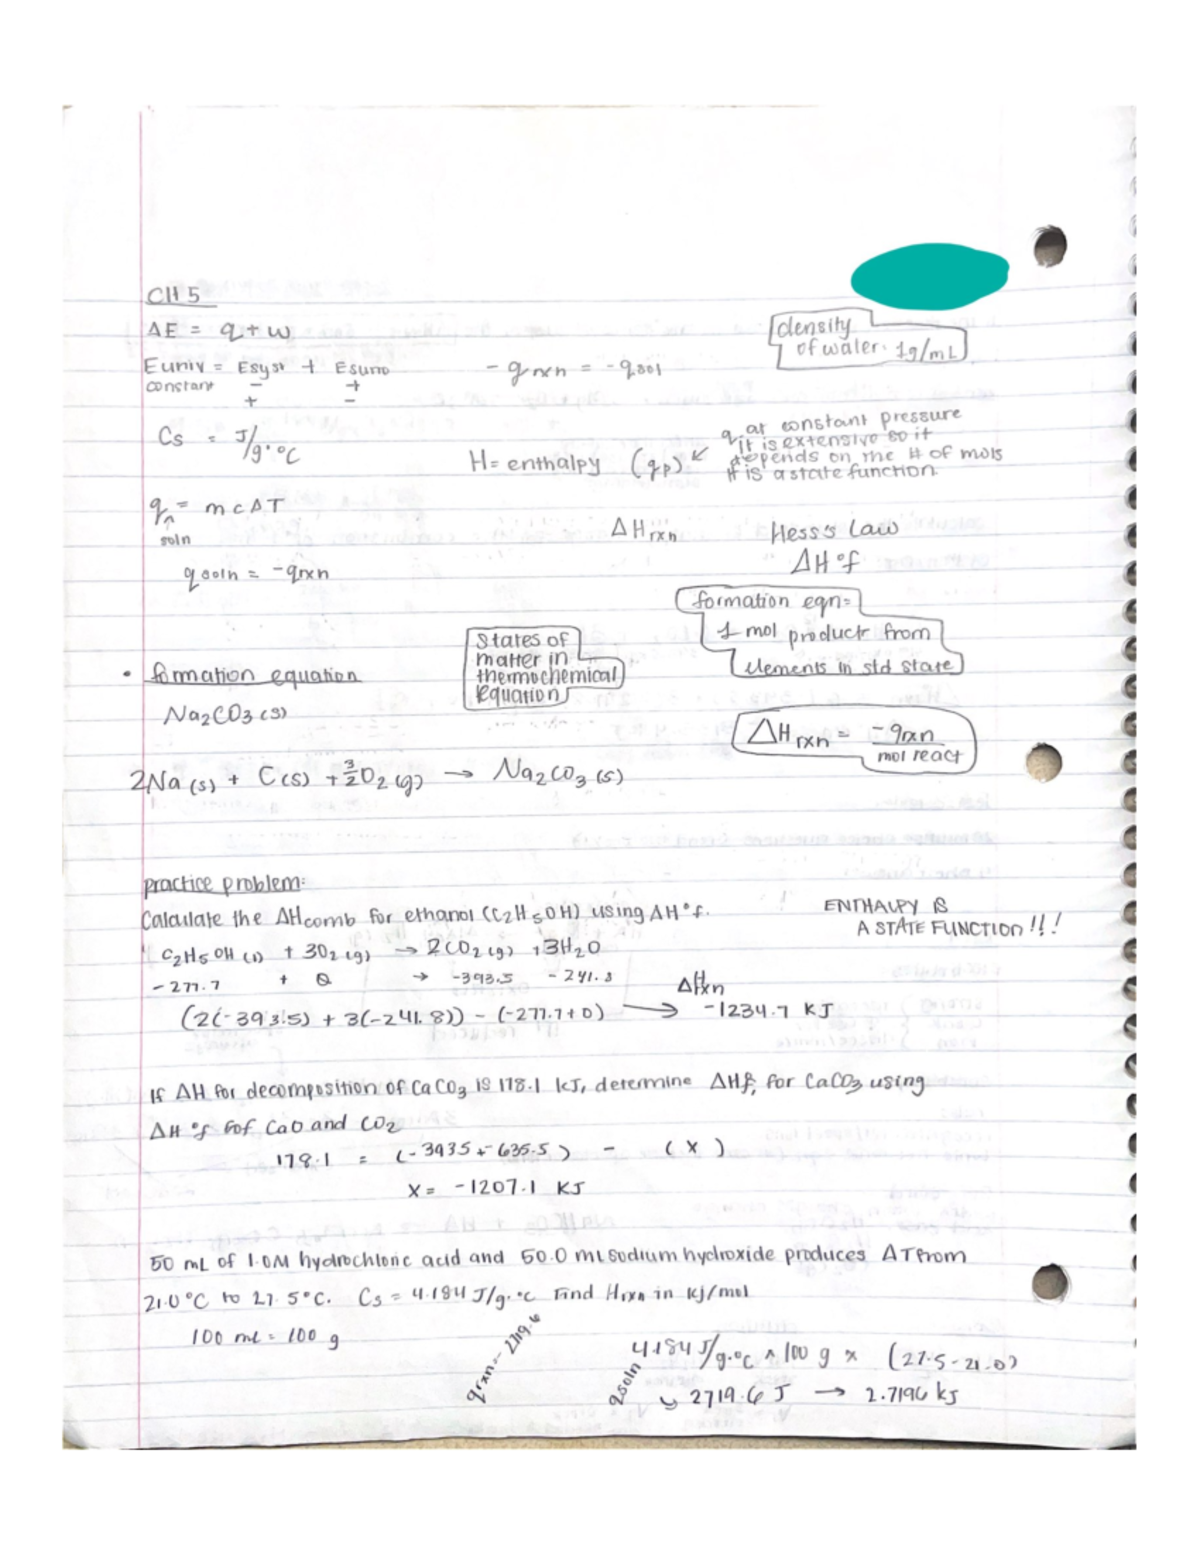 CH 5
ΔE = q + w
density
of water: 1g/mL
Euniv = Esyst + Esurro
constant - +
+ -
- qrxn = - qsol
Cs = J/g·°C
H = enthalpy (qp) ↙ q at constant pressure
it is extensive so it
depends on the # of mols
it is a state function.
q = mcΔT
↑
soln
ΔHrxn Hess's Law
ΔH°f
qsoln = -qrxn
formation eqn=
1 mol product from
elements in std state
States of
matter in
thermochemical
equation
• formation equation
Na2CO3 (s)
ΔHrxn = -qrxn
mol react
2Na (s) + C(s) + 3/2 O2 (g) → Na2CO3 (s)
practice problem:
Calculate the ΔHcomb for ethanol (C2H5OH) using ΔH°f.
ENTHALPY IS
A STATE FUNCTION!!!
C2H5OH (l) + 3O2 (g) → 2CO2 (g) + 3H2O
-277.7 + 0 → -393.5 -241.8
(2(-393.5) + 3(-241.8)) - (-277.7+0) → -1234.7 KJ
ΔHrxn
If ΔH for decomposition of CaCO3 is 178.1 kJ, determine ΔHf, for CaCO3 using
ΔH°f fof CaO and CO2
178.1 = (-393.5 + -635.5) - (x)
x = -1207.1 KJ
50 mL of 1.0M hydrochloric acid and 50.0 mL sodium hydroxide produces ΔT from
21.0°C to 27.5°C. Cs = 4.184 J/g·°C Find Hrxn in kj/mol
100 mL = 100 g
qrxn = -2719.6
qsoln
4.184 J/g·°C × 100 g × (27.5-21.0)
↳ 2719.6 J → 2.7196 kJ